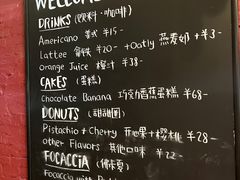 WELCOME
DRINKS (饮料·咖啡)
Americano 美式 ¥15-
Lattee 拿铁 ¥20- +Oatly 燕麦奶 +¥3-
Orange Juice 橙汁 ¥38-
CAKES (蛋糕)
Chocolate Banana 巧克力香蕉蛋糕 ¥68-
DONUTS (甜甜圈)
Pistachio + Cherry 开心果+樱桃 ¥28-
other Flavors 其他口味 ¥22-
FOCACCIA (佛卡夏)
Focaccia with